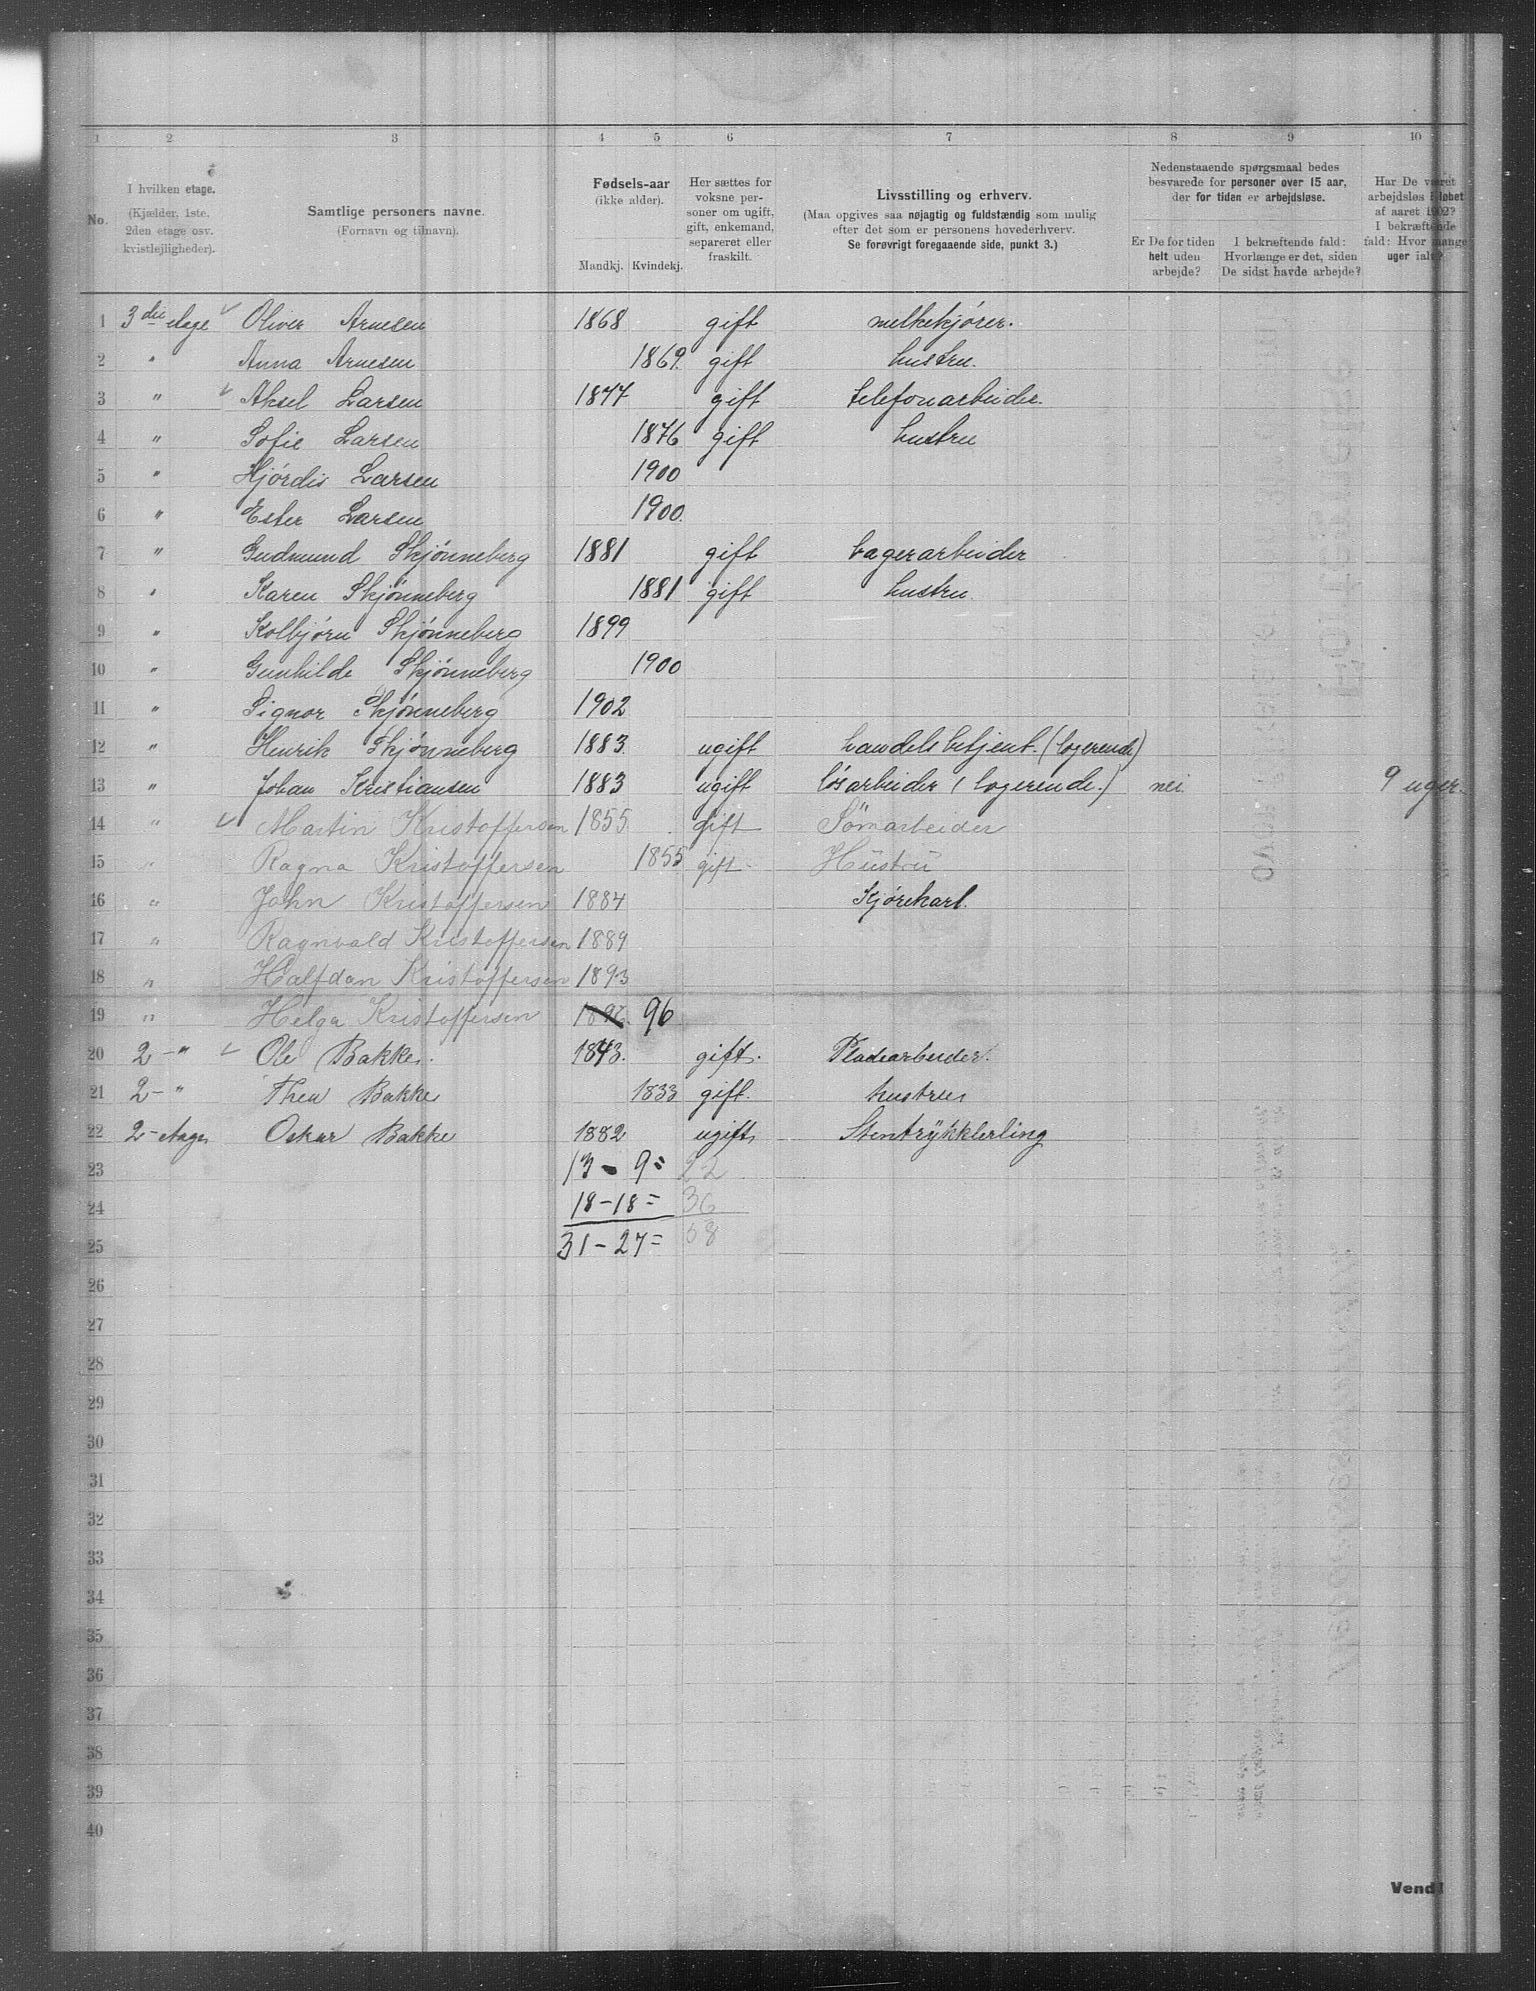 1 2 3 4 5 6 7 8 9 10
No.
I hvilken etage.
(Kjælder, 1ste.
2den etage osv.
kvistlejligheder).
Samtlige personers navne.
(Fornavn og tilnavn).
Fødsels-aar
(ikke alder).
Mandkj. Kvindekj.
Her sættes for
voksne per-
soner om ugift,
gift, enkemand,
separeret eller
fraskilt.
Livsstilling og erhverv.
(Maa opgives saa nøjagtig og fuldstændig som mulig
efter det som er personens hovederhverv.
Se forøvrigt foregaaende side, punkt 3.)
Nedenstaaende spørgsmaal bedes
besvarede for personer over 15 aar,
der for tiden er arbejdsløse.
Er De for tiden
helt uden
arbejde?
I bekræftende fald:
Hvorlænge er det, siden
De sidst havde arbejde?
Har De været
arbejdsløs i løbet
af aaret 1902?
I bekræftende
fald: Hvor mange
uger ialt?
1 3die etage Oliver Arnesen 1868 gift melkekjører.
2 " Anna Arnesen 1869. gift hustru.
3 " Aksel Larsen 1877 gift telefonarbeider.
4 " Sofie Larsen 1876 gift hustru
5 " Hjórdis Larsen 1900
6 " Ester Larsen 1900.
7 " Gudmund Skjónneberg 1881 gift bagerarbeider
8 " Karen Skjønneberg 1881 gift hustru.
9 " Kolbjórn Skjónneberg 1899
10 " Gunhilde Skjónneberg 1900
11 " Signor Skjønneberg 1902
12 " Henrik Skjønneberg 1883 ugift handelsbetjent. (logerende)
13 " Johan Kristiansen 1883 ugift lósarbeider (logerende.) nei 9 uger.
14 " Martin Kristoffersen 1855 gift Tömarbeider
15 " Ragna Kristoffersen 1855 gift Hüstrü
16 " John Kristoffersen 1884 Kjórekarl.
17 " Ragnvald Kristoffersen 1889
18 " Halfdan Kristoffersen 1893
19 " Helga Kristoffersen 1896 96
20 2-" Ole Bakke. 1843. gift. Pladearbeider.
21 2-" Thea Bakke 1833 gift. hustru
22 2-etage Oskar Bakke 1882 ugift Stentrykklerling
23 13 - 9 = 22
24 18 - 18 = 36
25 31 - 27 = 58
26
27
28
29
30
31
32
33
34
35
36
37
38
39
40
Vend!